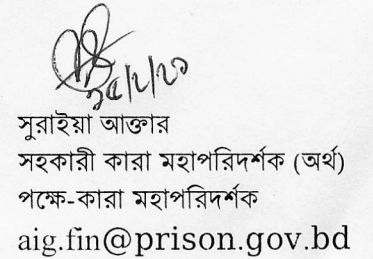 সুরাইয়া আক্তার
সহকারী কারা মহাপরিদর্শক (অর্থ)
পক্ষে-কারা মহাপরিদর্শক
aig.fin@prison.gov.bd